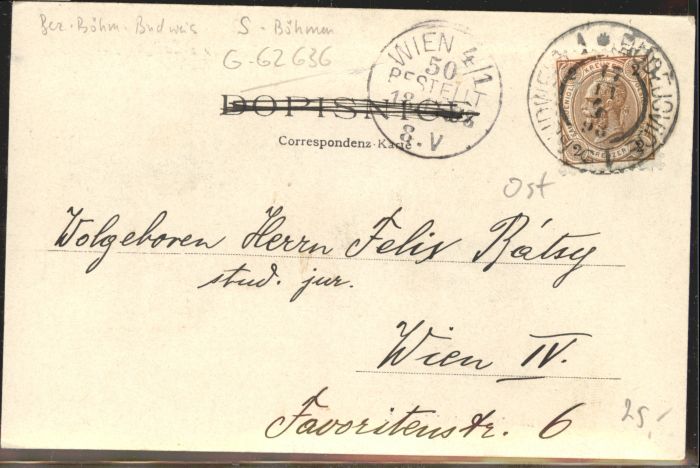 Bez. Böhm. Budweis S-Böhmen
G-62636
WIEN 4/1
50
BESTELLT
8.V
DOPISNICE
Correspondenz-Karte
BUDWEIS 1 * BUDĚJOVICE
KREUZER
Ost
Wolgeboren Herrn Felix Rátsy
stud. jur.
Wien IV.
Favoritenstr. 6
25,-